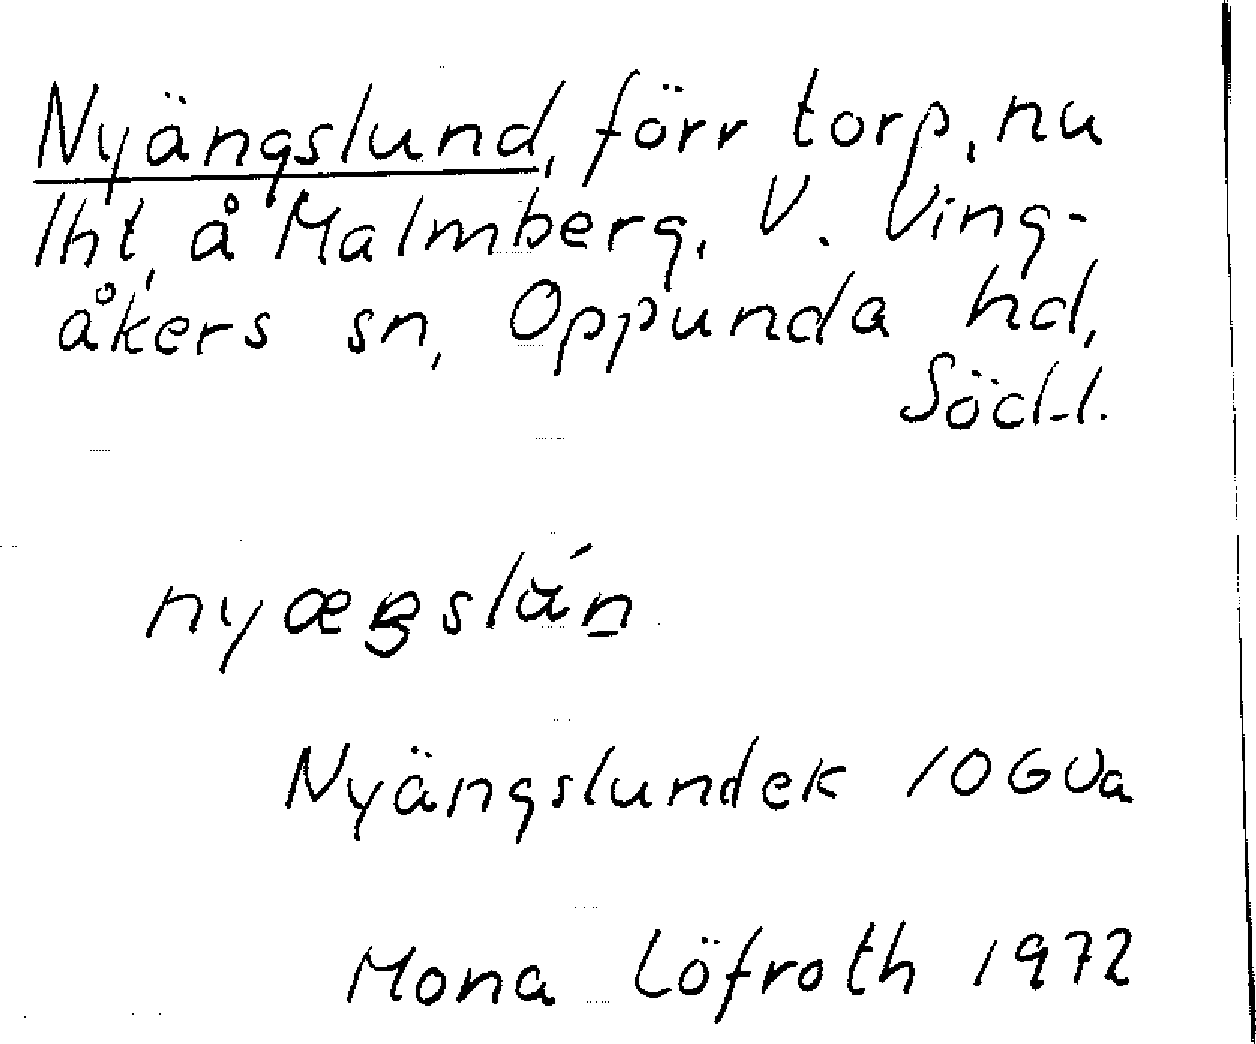 Nyängslund, förr torp, nu
lht, å Malmberg, V. Ving-
åkers sn, Oppunda hd,
Söd-l.
Nyängslundek 10GVa
Mona Löfroth 1972